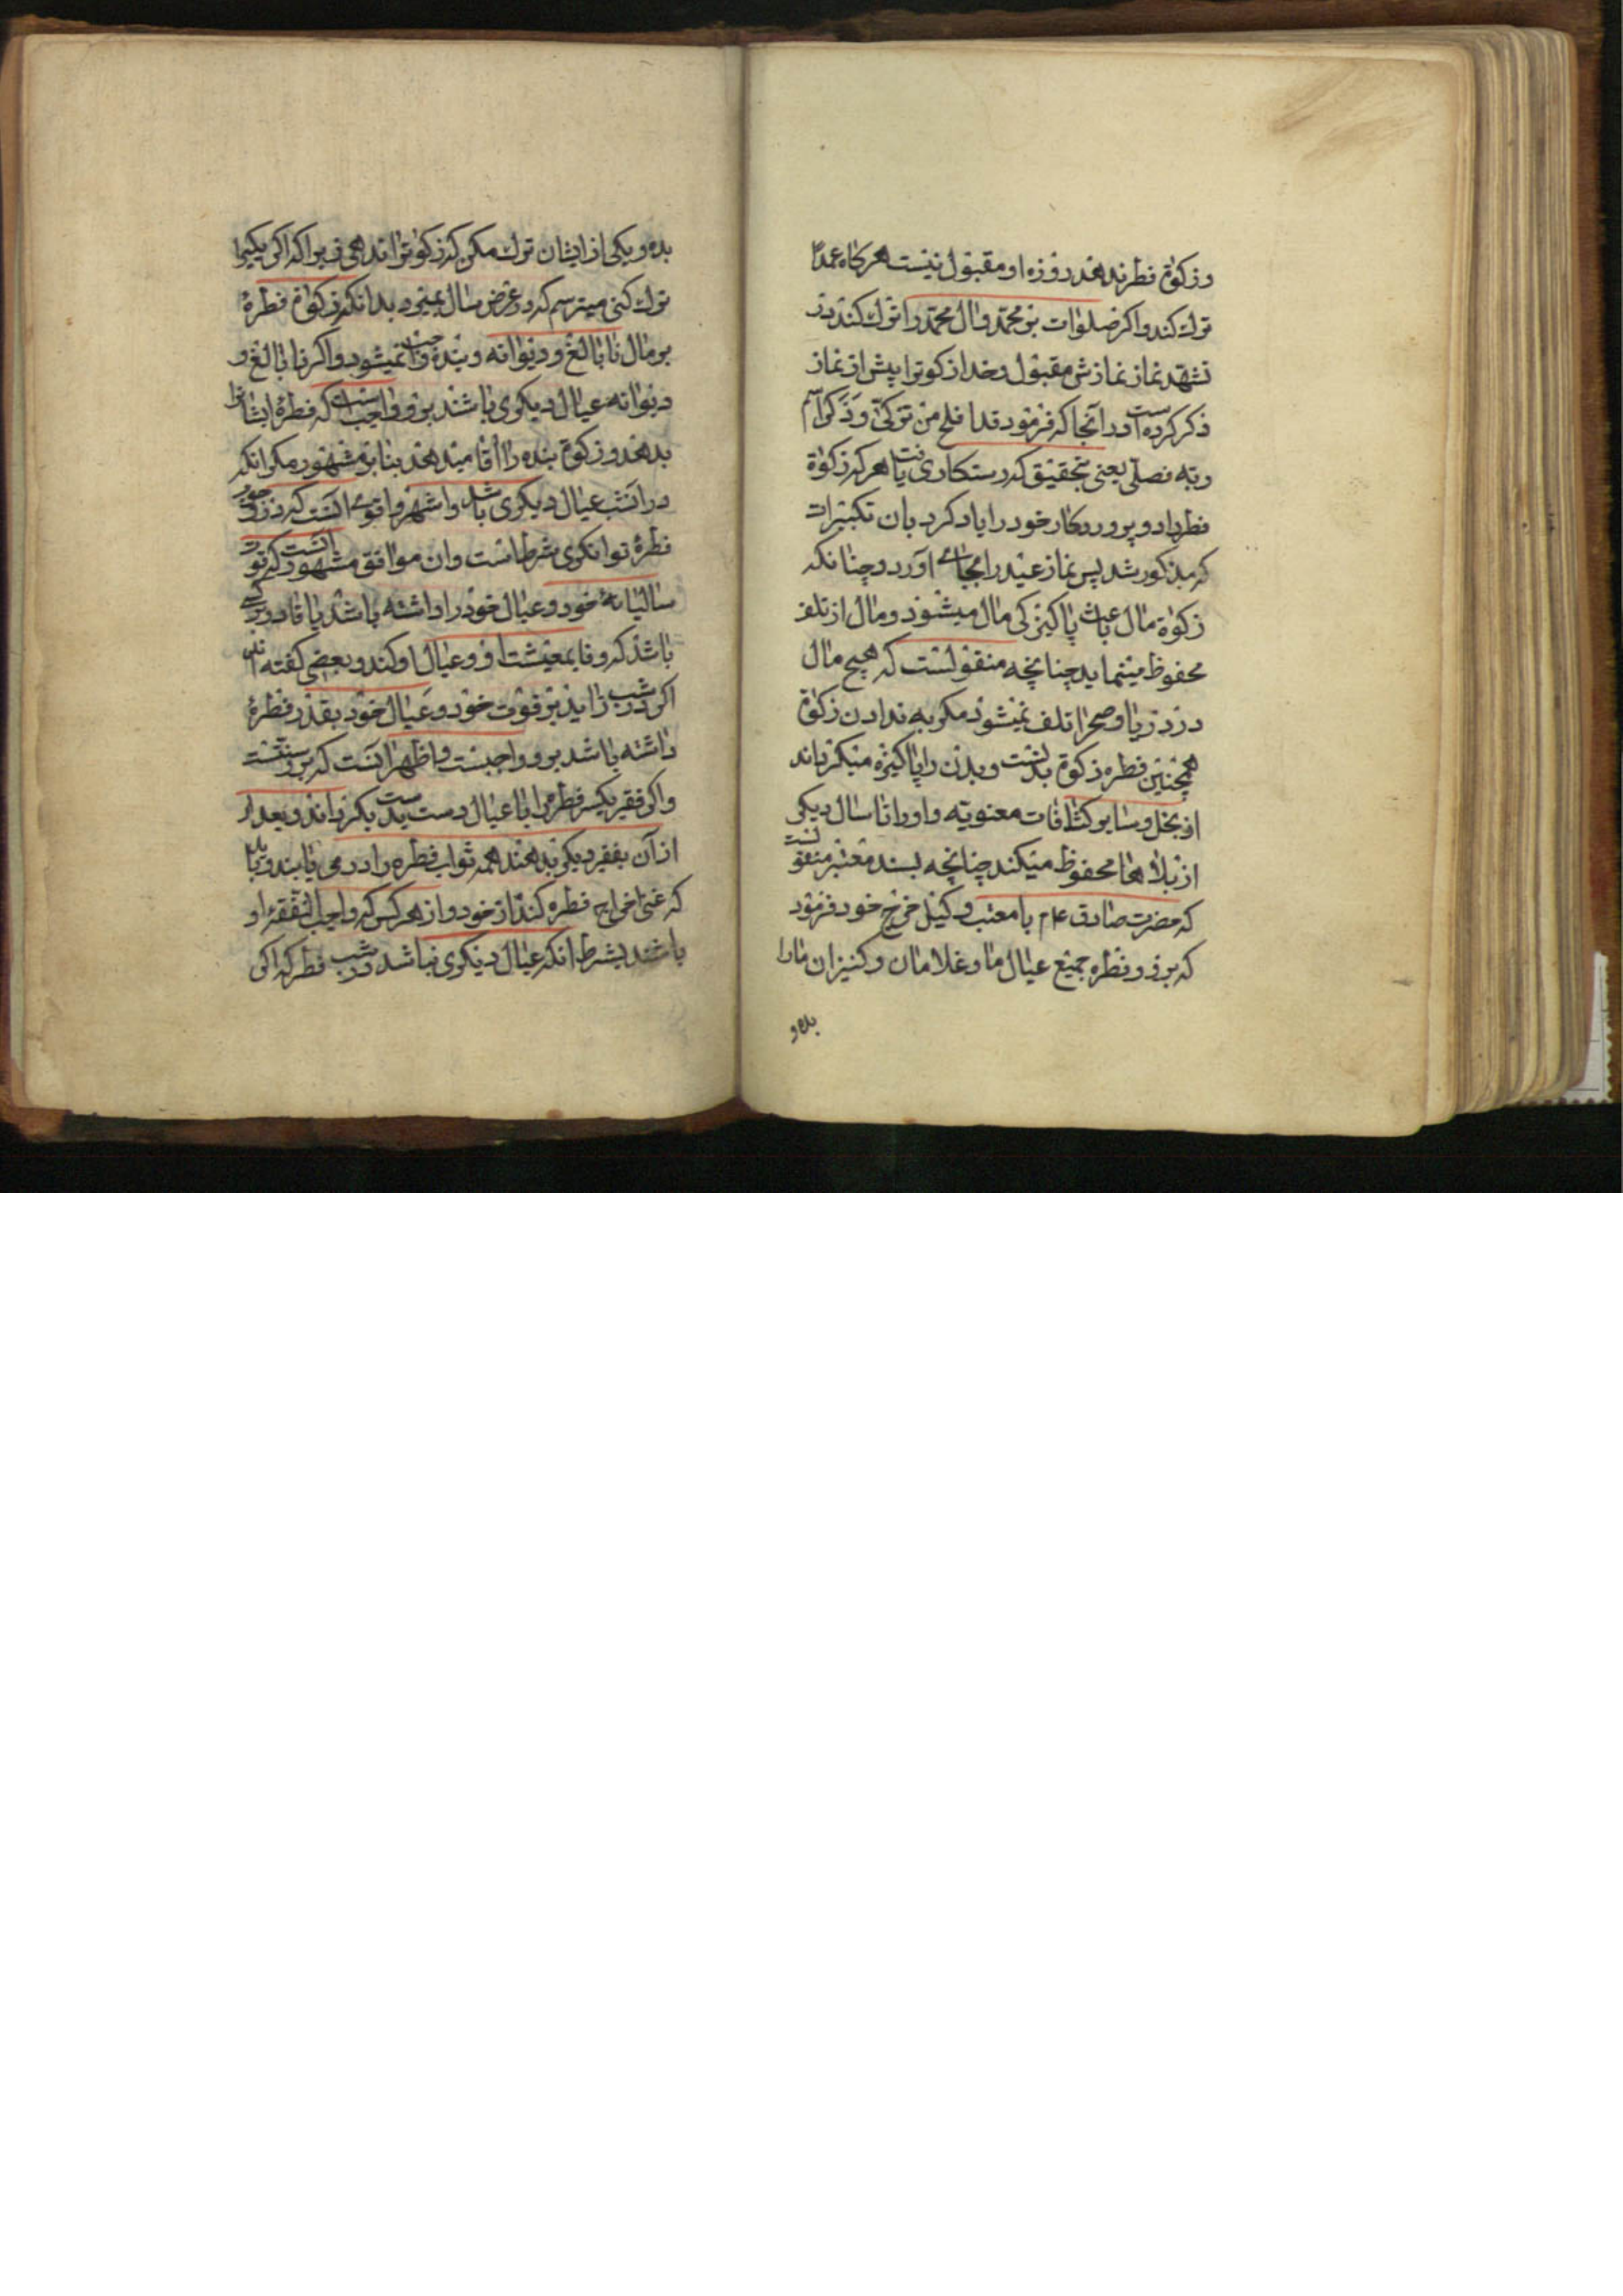 وزکوة فطر ندهند روزه او مقبول نیست هرکاه عمداً
ترك کند واکر صلوات بر محمّد وال محمّد را ترك کند در
تشهّد نماز نمازش مقبول وخدا زکوترا پیش از نماز
ذکر کرده است در آنجا که فرمود قد افلح من تزکّی وَذَکَرَ اسم
ربّه فصلّی یعنی بتحقیق که رستکاری یافت هرکه زکوة
فطر داد و پروردکار خود را یاد کرد بان تکبیرات
که مذکور شد پس نماز عید را بجای آورد و چنانکه
زکوة مال باعث پاکیزکی مال میشود ومال از تلف
محفوظ مینماید چنانچه منقولست که هیچ مال
در دریا وصحرا تلف نمیشود مکر به ندادن زکوة
همچنین فطره زکوة بدنست وبدن را پاکیزه میکرداند
از بخل وسایر کثافات معنویّه واو را تا سال دیکر
از بلاها محفوظ میکند چنانچه بسند معتبر منقولست
که حضرت صادق عم با معتب وکیل خرج خود فرمود
که برو و فطره جمیع عیال ما وغلامان وکنیزان ما را
بده و
بده ویکی از ایشان ترك مکن که زکوترا ندهی زیرا که اکر یکیرا
ترك کنی میترسم که در عرض سال بمیرد بدانکه زکواة فطرهٔ
بر مال نابالغ و دیوانه وبنده واجب نمیشود واکر نابالغ و
دیوانه عیال دیکری باشند برو واجبست که فطرهٔ ایشانرا
بدهد وزکوة بنده را اقا میدهد بنابر مشهور مکر انکه
در آنشب عیال دیکری باشد واشهر واقوی آنست که در وجوب
فطرهٔ توانکری شرطاست وان موافق مشهور آنست که قوت
سالیانهٔ خود وعیال خود را داشته باشد یا قادر بر کسبی
باشد که وفا بمعیشت او وعیال او کند و بعضی کفته اند
اکر در شب زاید بر قوت خود وعیال خود بقدر فطرهٔ
داشته باشد برو واجبست واظهر آنست که برو سنّتست
واکر فقیر یکسر فطره را با عیال دست بدست بکرداند وبعد
از آن بفقیر دیکر بدهند همه ثواب فطره را درمی یابند و باید
که غنی اخراج فطره کند از خود واز هرکس که واجب النّفقهٔ او
باشند بشرط انکه عیال دیکری نباشد در شب فطر که اکر